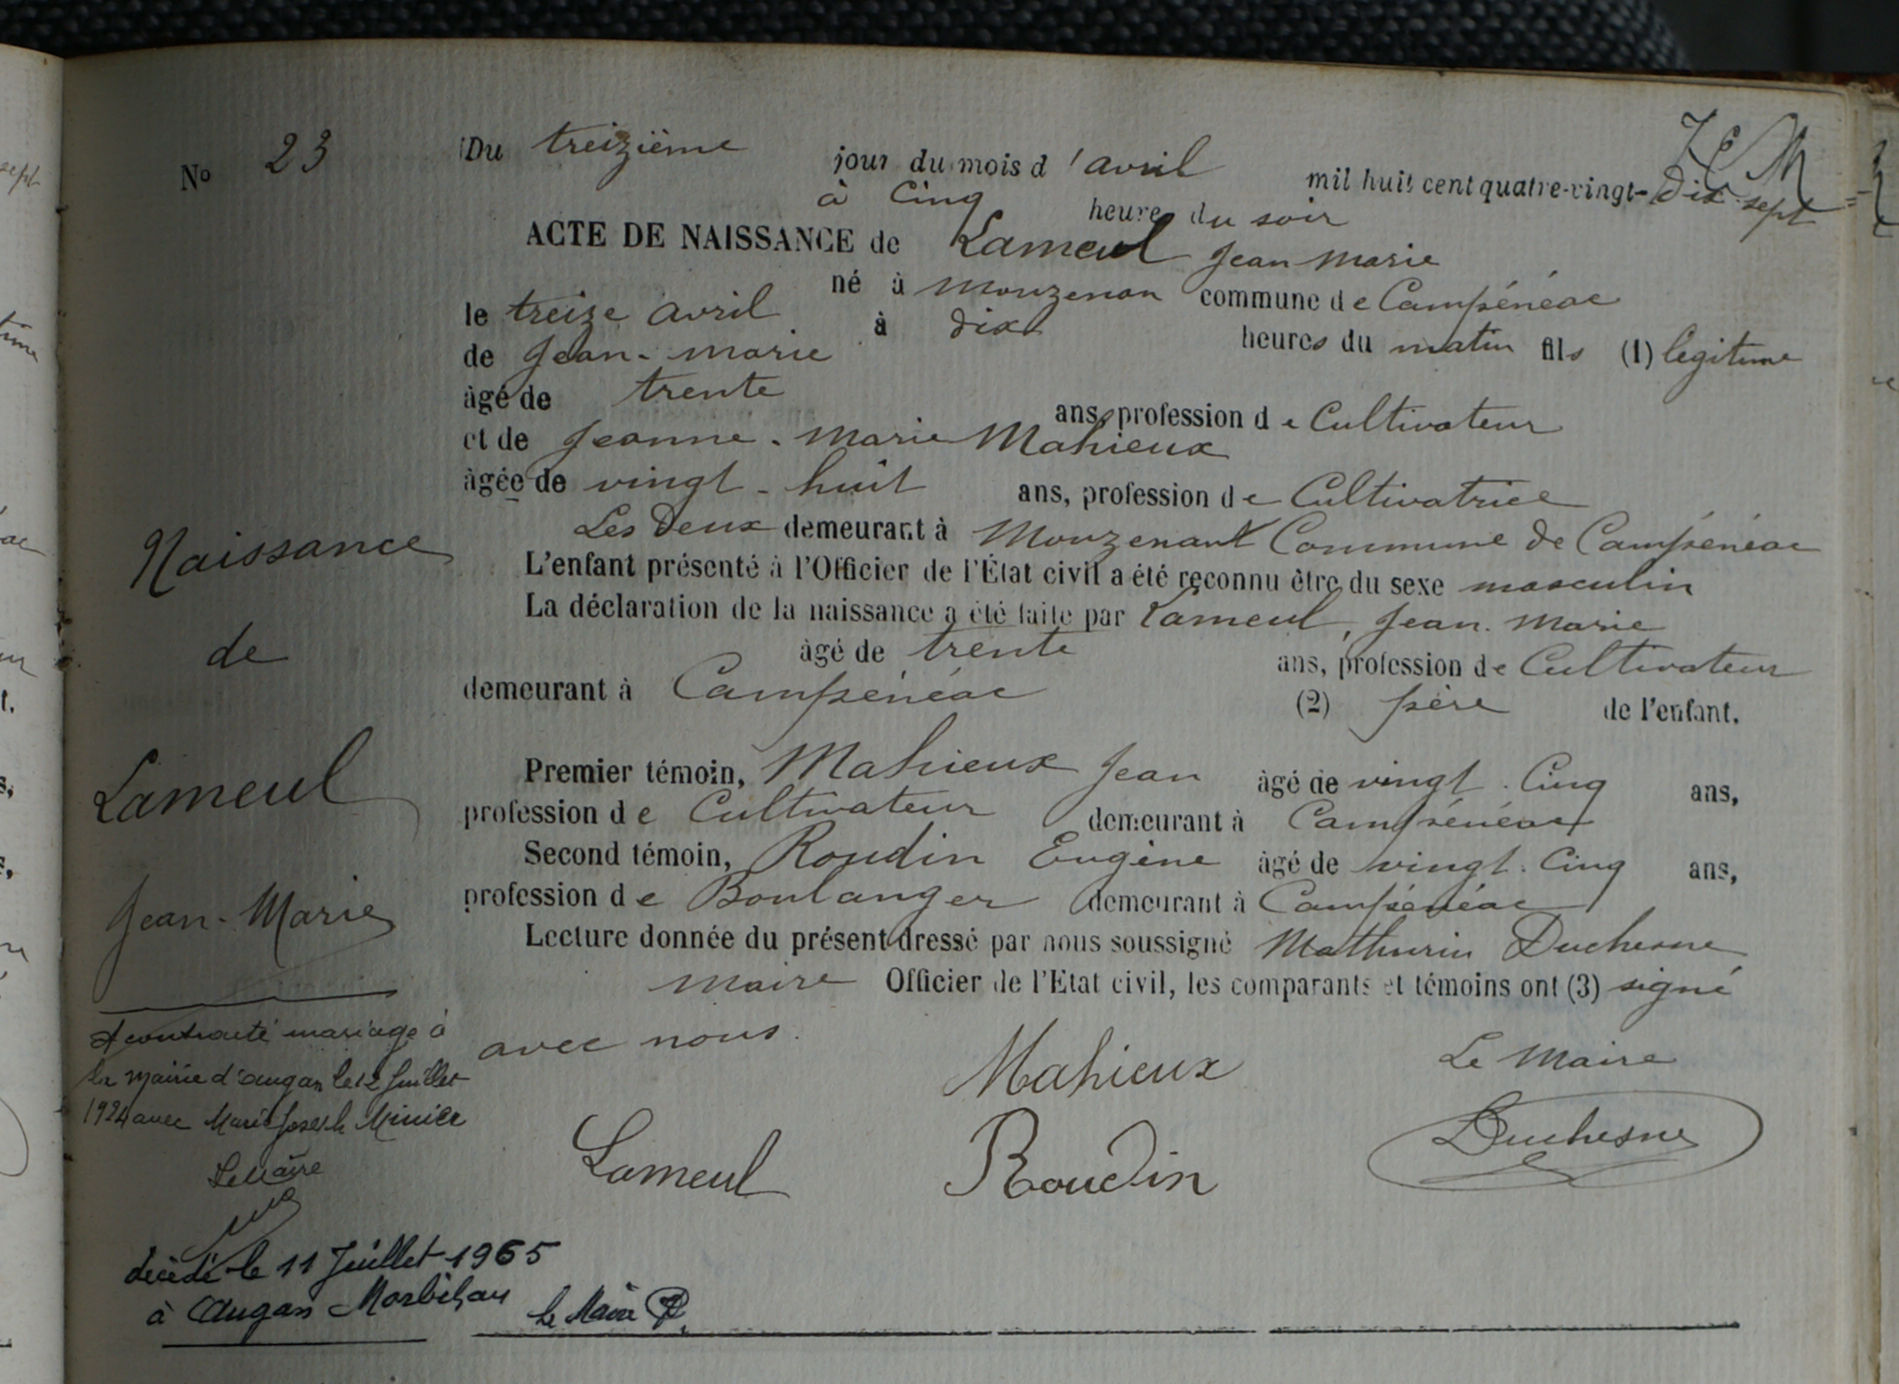 No 23
Du treizième jour du mois d'avril mil huit cent quatre-vingt-dix-sept
à Cinq heure du soir
ACTE DE NAISSANCE de Lameul Jean Marie
né à Monzenan commune de Campénéac
le treize avril à dix heures du matin fils (1) legitime
de Jean-Marie
âgé de trente ans, profession de Cultivateur
et de Jeanne-Marie Mahieux
âgée de vingt-huit ans, profession de Cultivatrice
Les deux demeurant à Monzenant Commune de Campénéac
L'enfant présenté à l'Officier de l'État civil a été reconnu être du sexe masculin
La déclaration de la naissance a été faite par Lameul, Jean-Marie
âgé de trente ans, profession de Cultivateur
demeurant à Campénéac (2) père de l'enfant.
Premier témoin, Mahieux Jean âgé de vingt-Cinq ans,
profession de Cultivateur demeurant à Campénéac
Second témoin, Roudin Eugène âgé de vingt-Cinq ans,
profession de Boulanger demeurant à Campénéac
Lecture donnée du présent dressé par nous soussigné Mathurin Duchesne
maire Officier de l'Etat civil, les comparants et témoins ont (3) signé
avec nous.
Mahieux
Le Maire
Lameul
Roudin
Duchesne
Naissance
de
Lameul
Jean-Marie
A contracté mariage à
la mairie d'augan le 12 Juillet
1924 avec Marie Joseph Minier
Le Maire
décédé le 11 Juillet 1965
à Augan Morbihan
le Maire